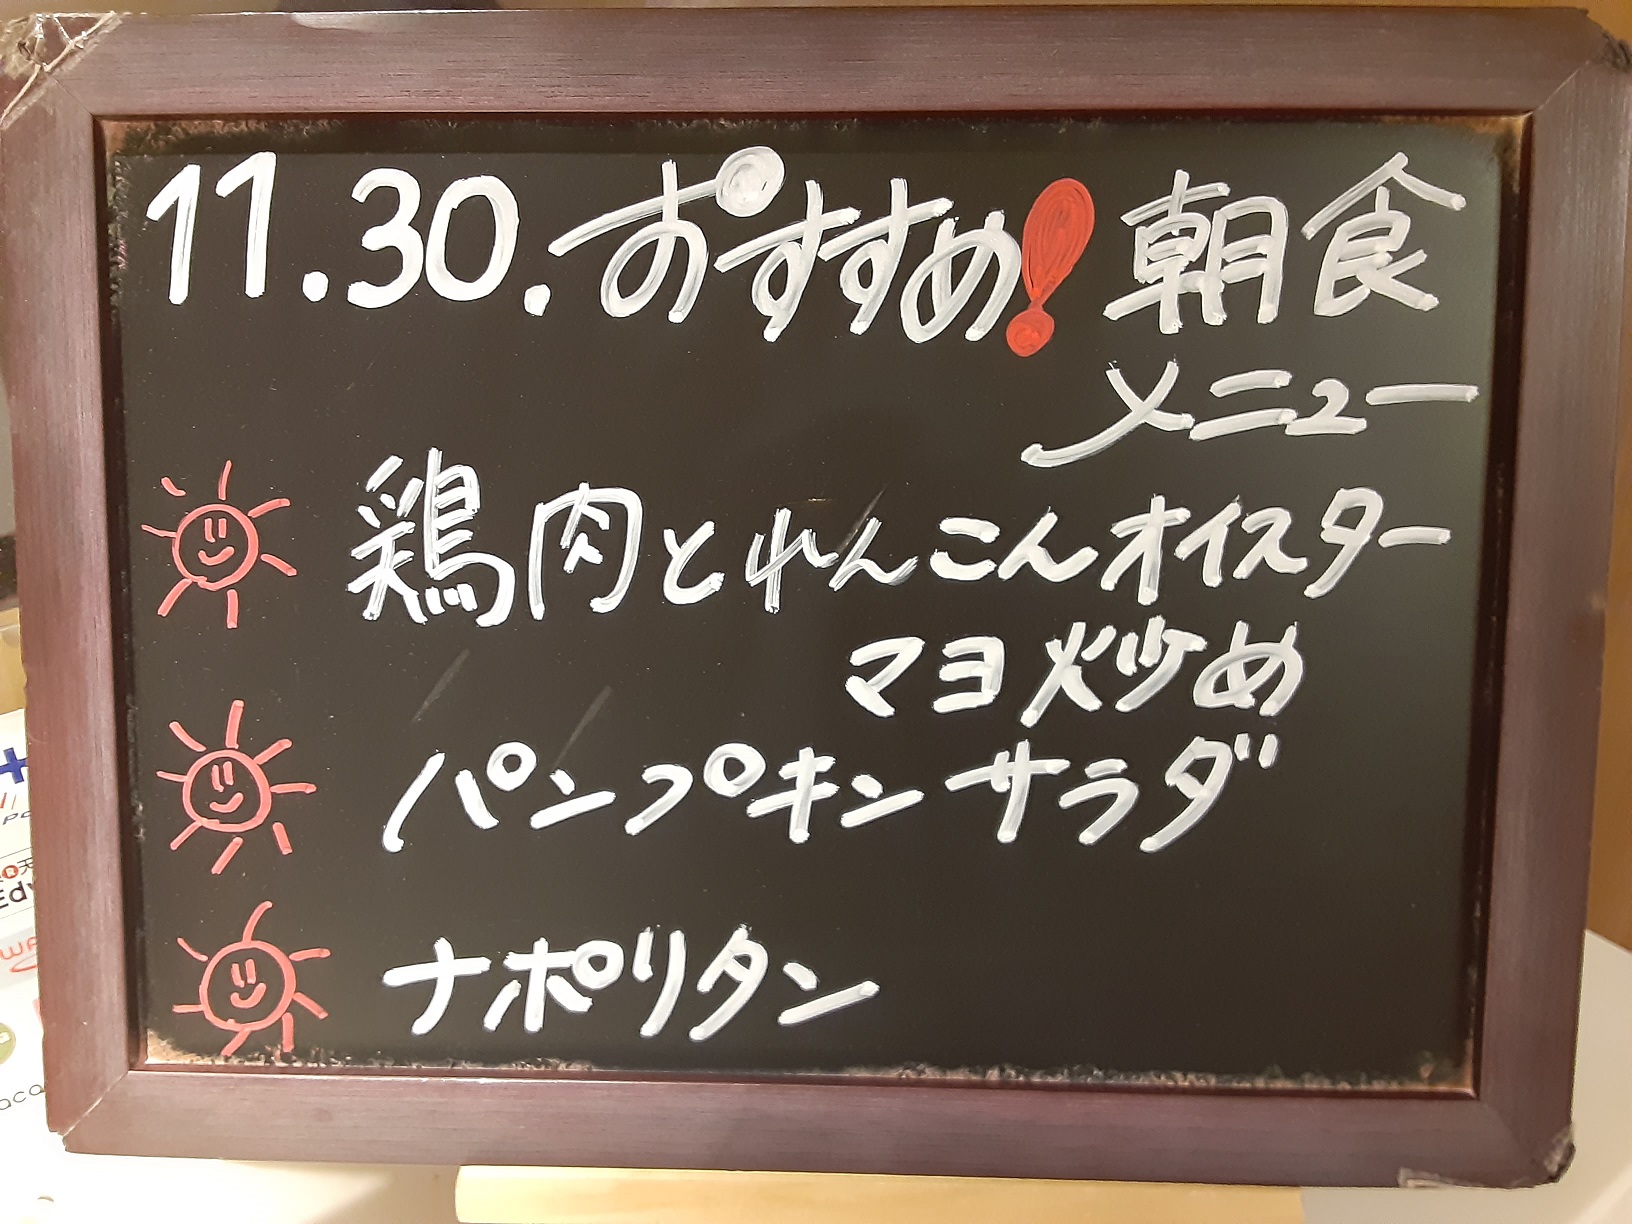 11.30.おすすめ!朝食
メニュー
鶏肉とれんこんオイスター
マヨ炒め
パンプキンサラダ
ナポリタン
Edy